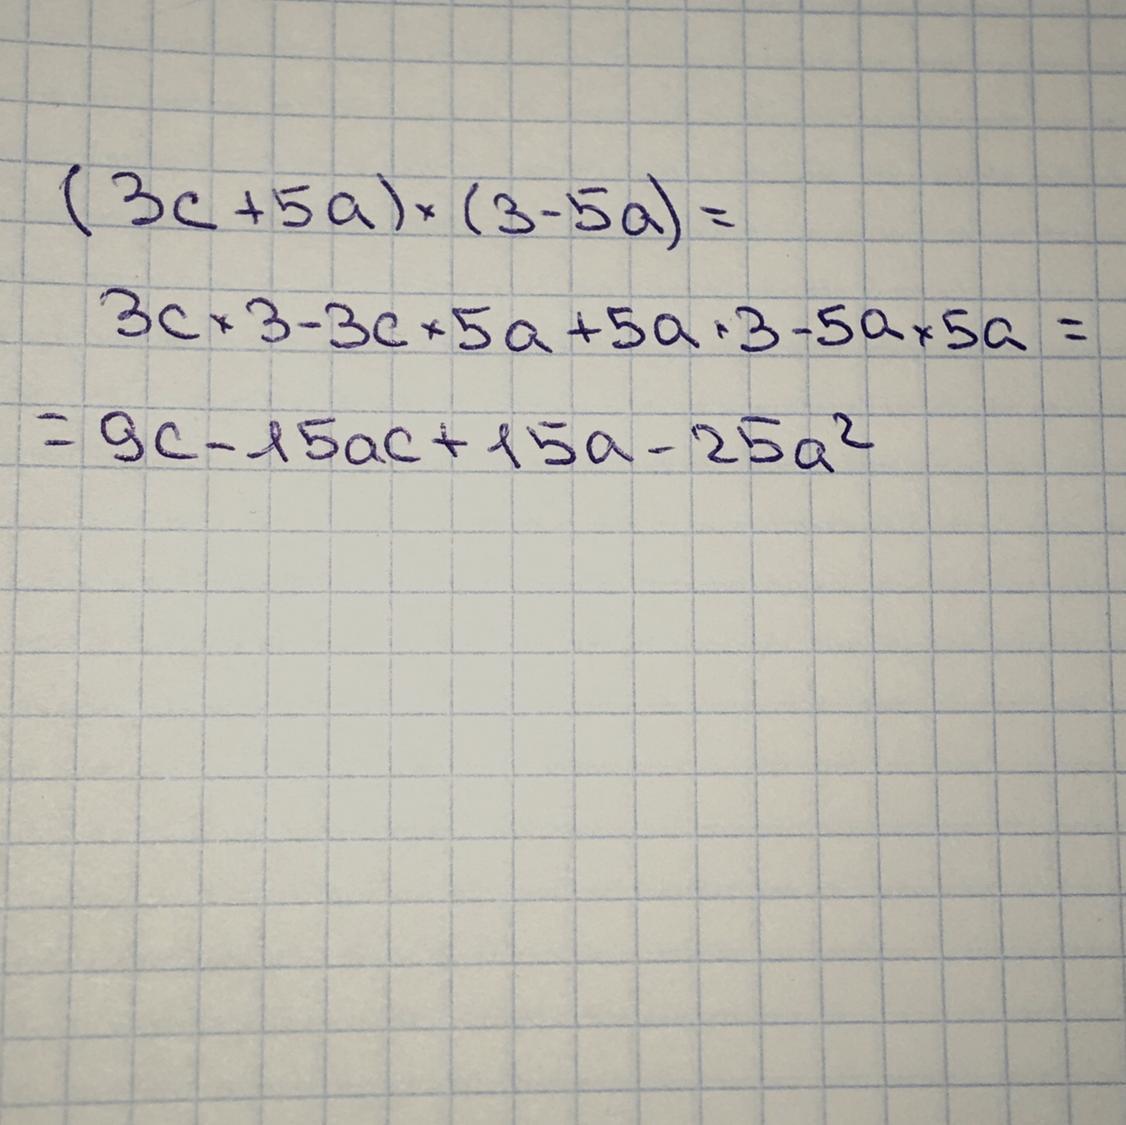 (3c+5a)×(3-5a)=
3c×3-3c×5a+5a·3-5a×5a=
=9c-15ac+15a-25a²